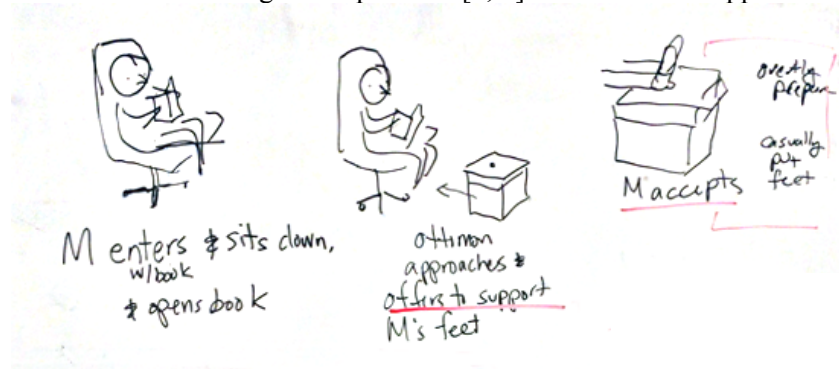 M enters & sits down,
w/book
& opens book
ottoman
approaches &
offers to support
M's feet
M accepts
overtly
prepare
casually
put
feet